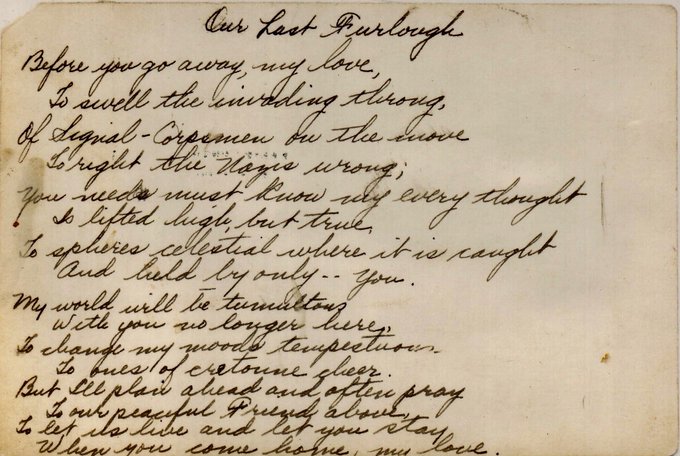 Our Last Furlough
Before you go away, my love,
To swell the invading throng,
Of Signal-Corpsmen on the move
To right the Nazis wrong;
You needs must know my every thought
Is lifted high, but true,
To spheres celestial where it is caught
And held by only -- you.
My world will be tumultous
With you no longer here,
To change my moods tempestuous
To ones of cretonne cheer.
But I'll plan ahead and often pray
To our peaceful Friend above,
To let us live and let you stay
When you come home, my love.